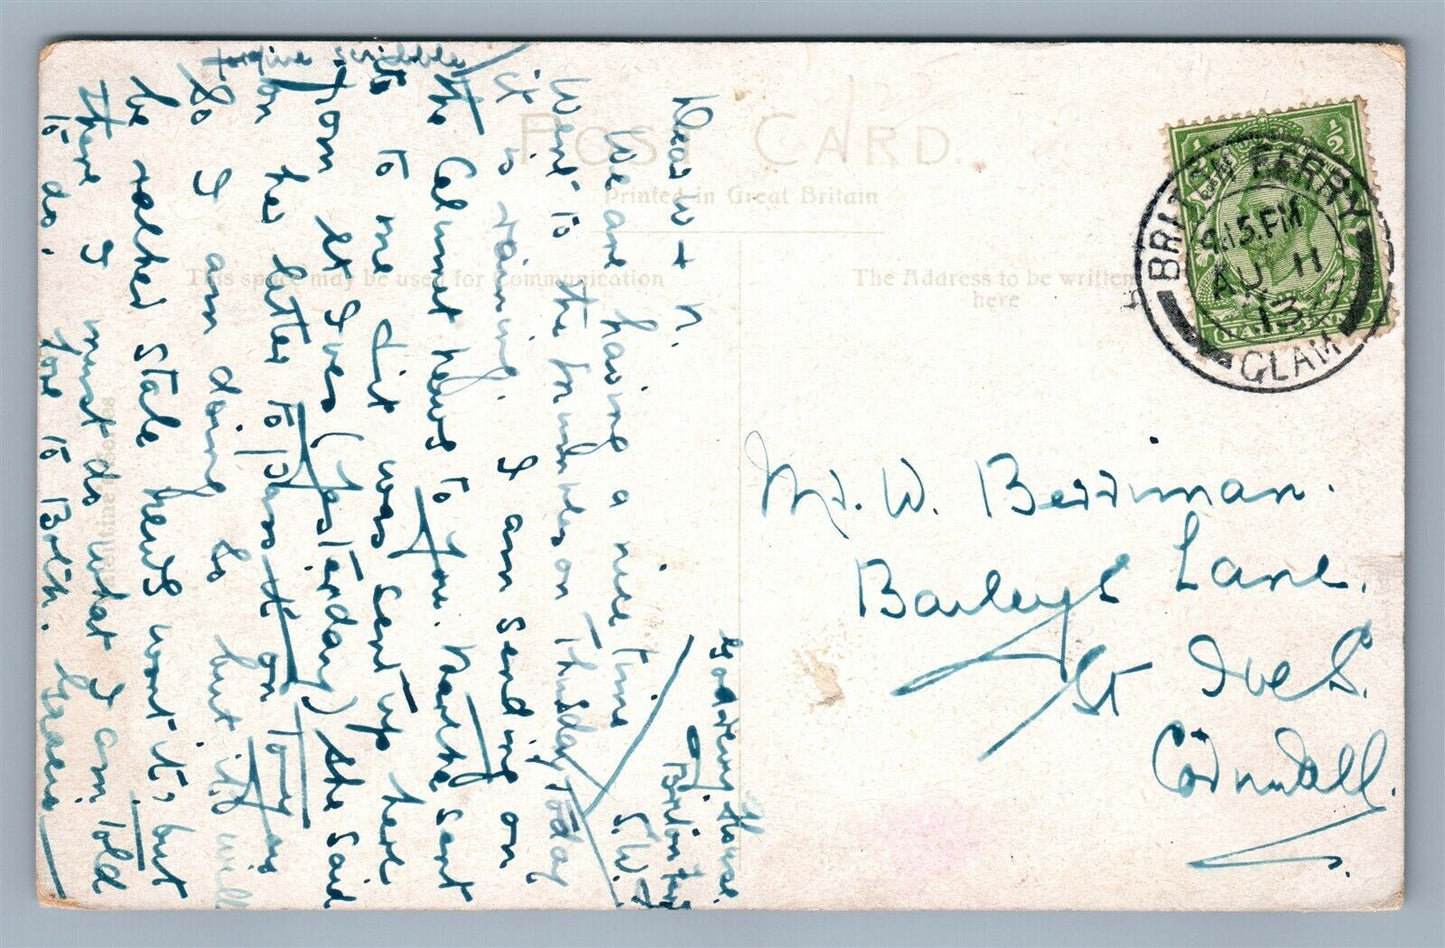 POST CARD.
Printed in Great Britain
This space may be used for Communication
The Address to be written
here
BRITON FERRY
9.15.PM
AU 11
13
GLAM
Mr. W. Berriman.
Baileys Lane.
St Ives.
Cornwall.
House.
Briton Fy
S.W.
Dear W + N.
We are having a nice time
Went to the on Thursday today
it is raining. I am sending on
the Calumet news to you. sent
to me but it was sent up here
from St Ives (yesterday) she said
on his letter to pass it on to
So I am doing so but it will
be rather stale news wont it, but
there I must do what I am told
to do. love to Both. Grace